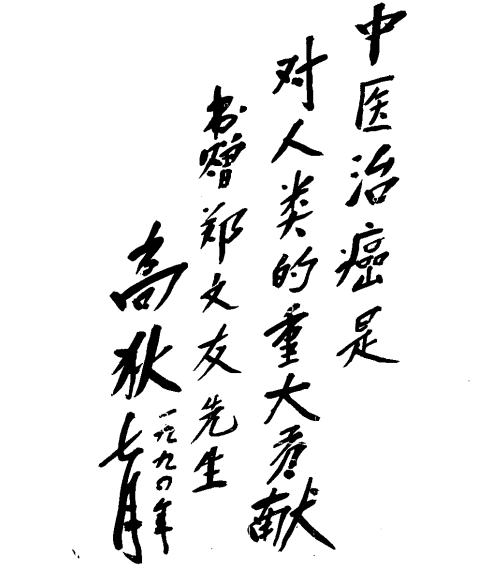 中医治癌是
对人类的重大贡献
书赠郑文友先生
高狄
一九九〇年
七月